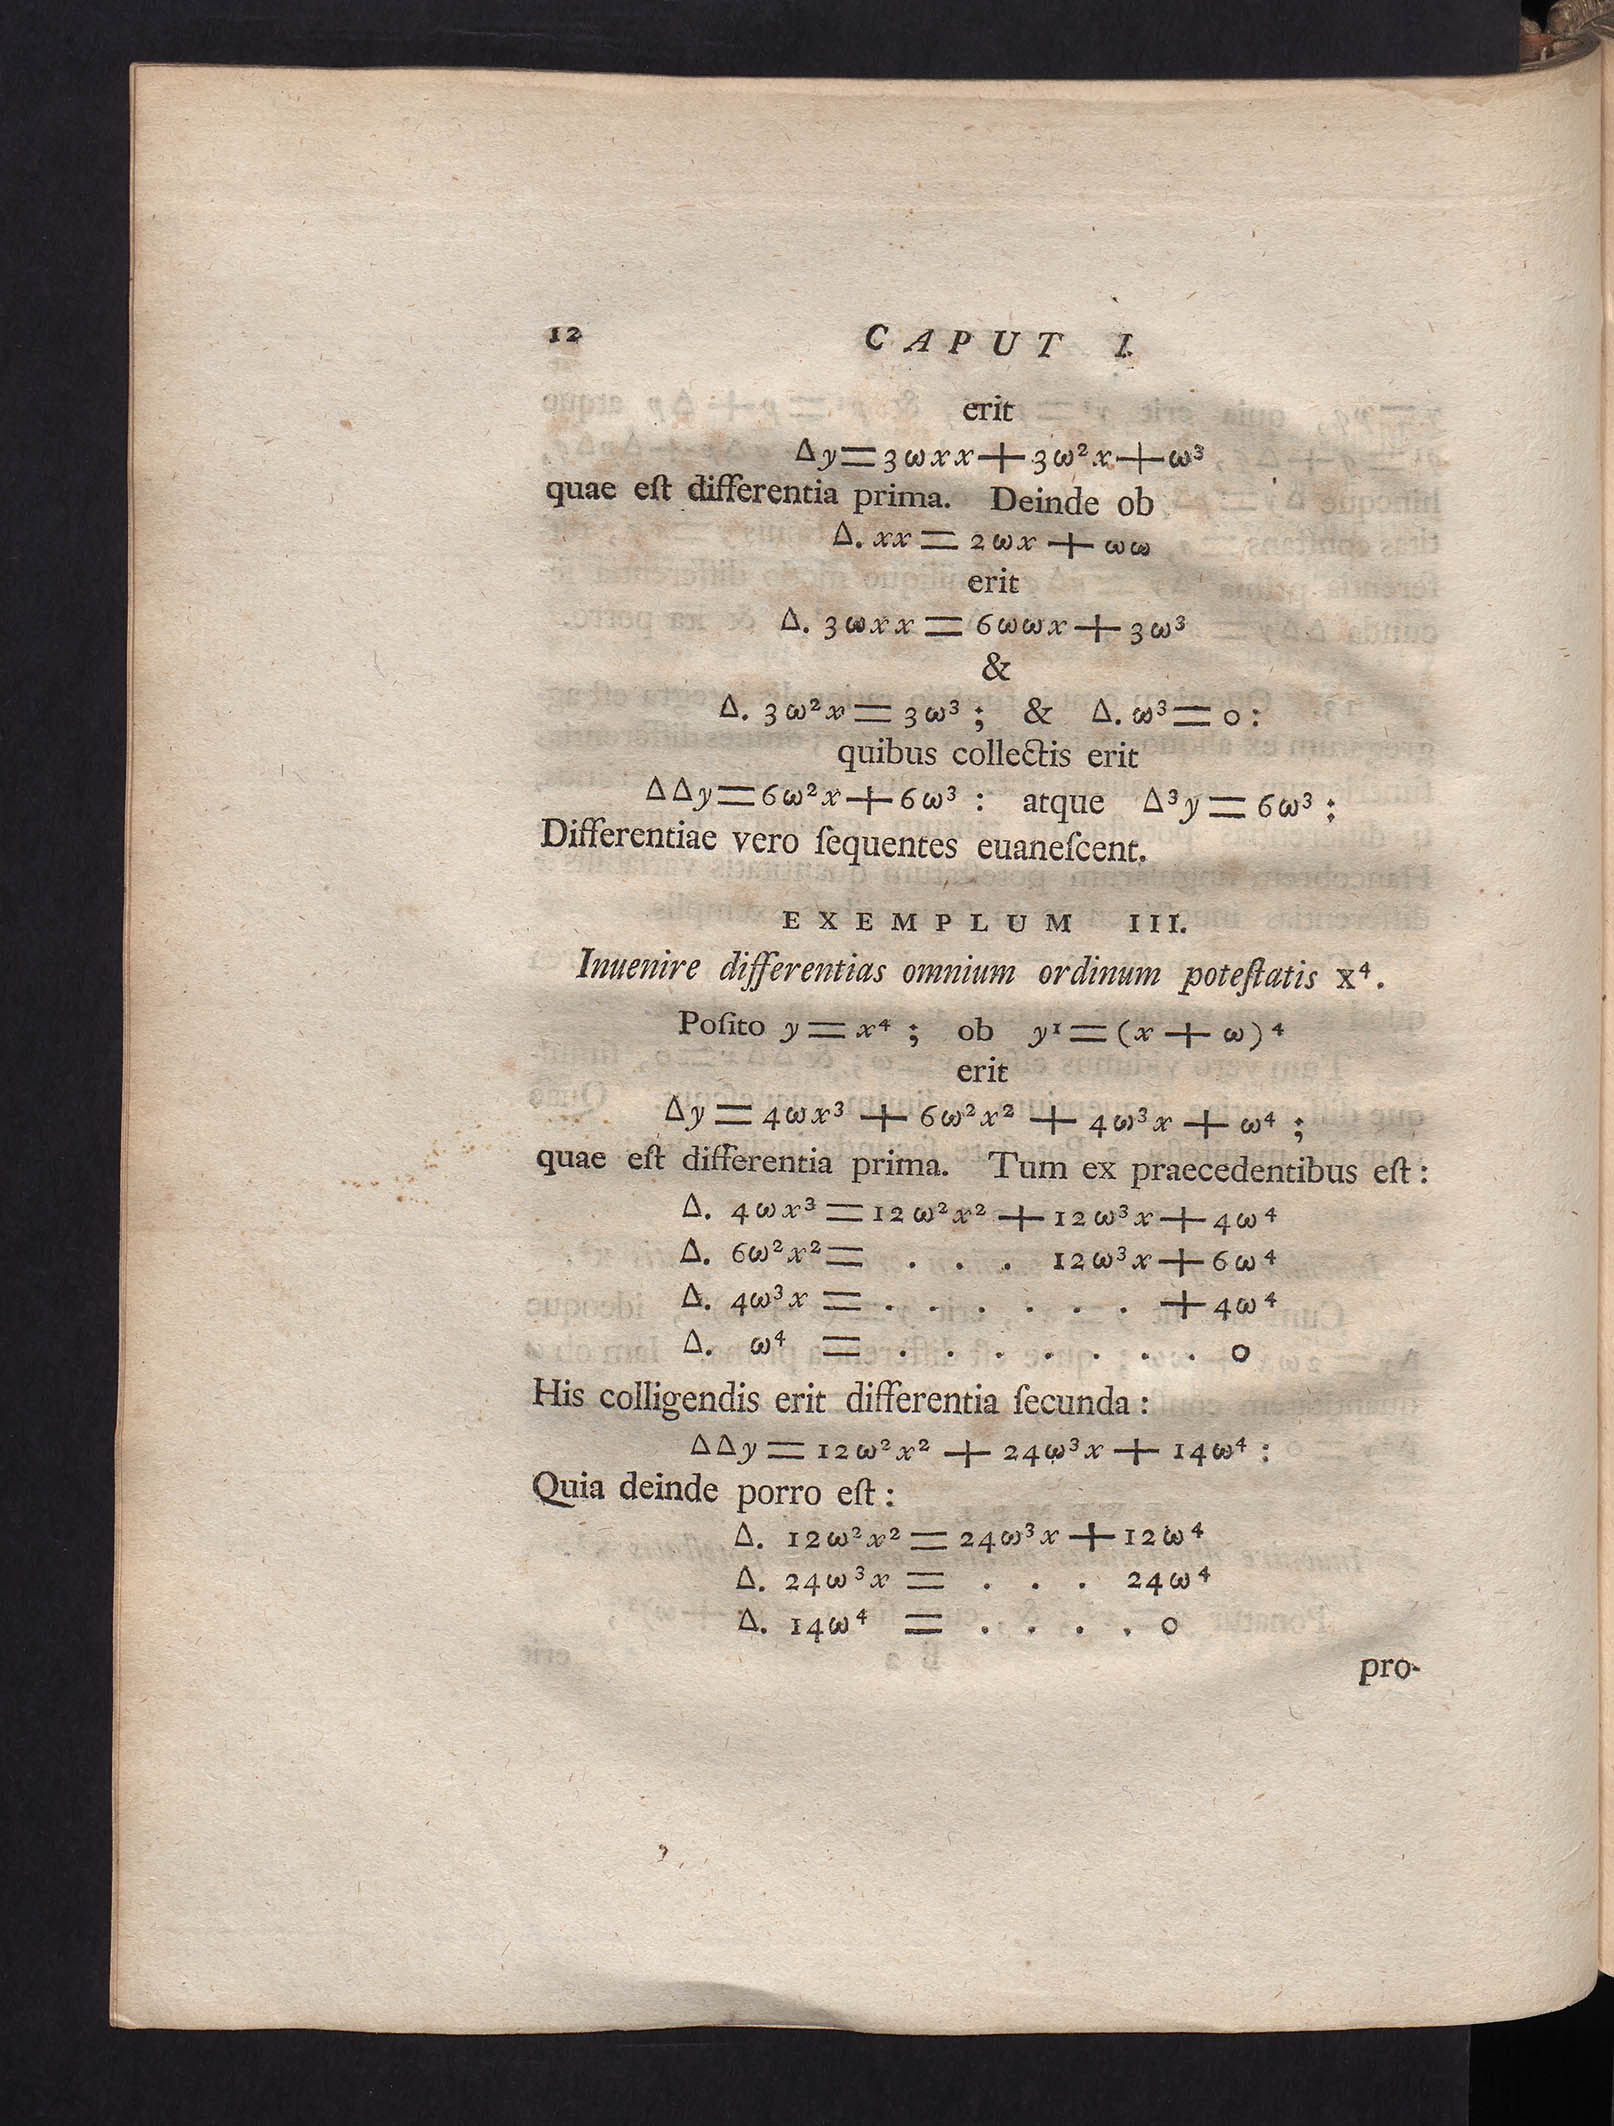 12 CAPUT I.
erit
Δy=3ωxx+3ω²x+ω³
quae eſt differentia prima. Deinde ob
Δ. xx = 2ωx + ωω
erit
Δ. 3ωxx = 6ωωx + 3ω³
&
Δ. 3ω²x = 3ω³ ; & Δ. ω³ = 0 :
quibus collectis erit
ΔΔy=6ω²x+6ω³ : atque Δ³y = 6ω³ :
Differentiae vero ſequentes euaneſcent.
EXEMPLUM III.
Inuenire differentias omnium ordinum poteſtatis x⁴.
Poſito y = x⁴ ; ob y¹ = (x + ω)⁴
erit
Δy = 4ωx³ + 6ω²x² + 4ω³x + ω⁴ ;
quae eſt differentia prima. Tum ex praecedentibus eſt :
Δ. 4ωx³ = 12ω²x² + 12ω³x + 4ω⁴
Δ. 6ω²x² = . . . 12ω³x + 6ω⁴
Δ. 4ω³x = . . . . . . + 4ω⁴
Δ. ω⁴ = . . . . . . . 0
His colligendis erit differentia ſecunda :
ΔΔy = 12ω²x² + 24ω³x + 14ω⁴ :
Quia deinde porro eſt :
Δ. 12ω²x² = 24ω³x + 12ω⁴
Δ. 24ω³x = . . . 24ω⁴
Δ. 14ω⁴ = . . . . 0
pro-